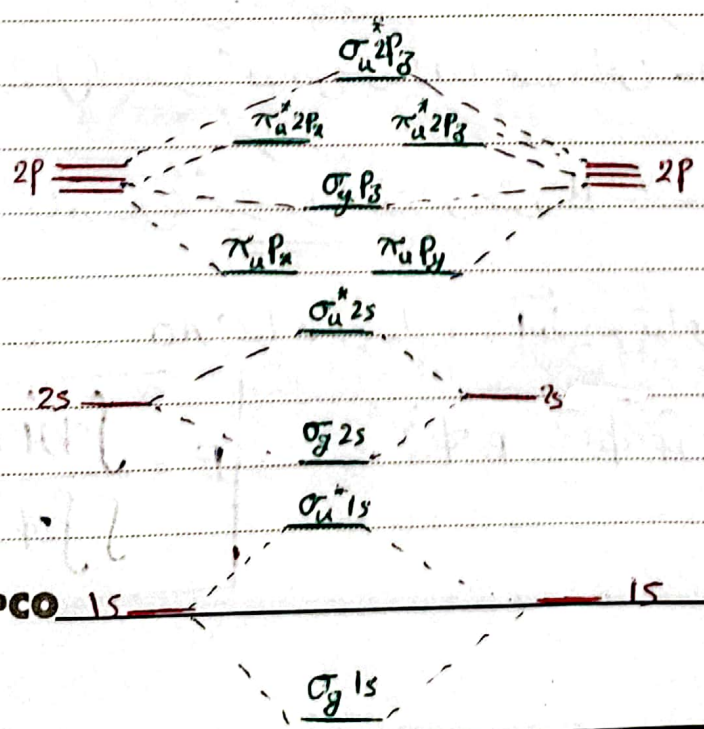 σu*2Pz
πu*2Px πu*2Pz
2P σgPz 2P
πuPx πuPy
σu*2s
2s 2s
σg2s
σu*1s
PCO 1s 1s
σg1s